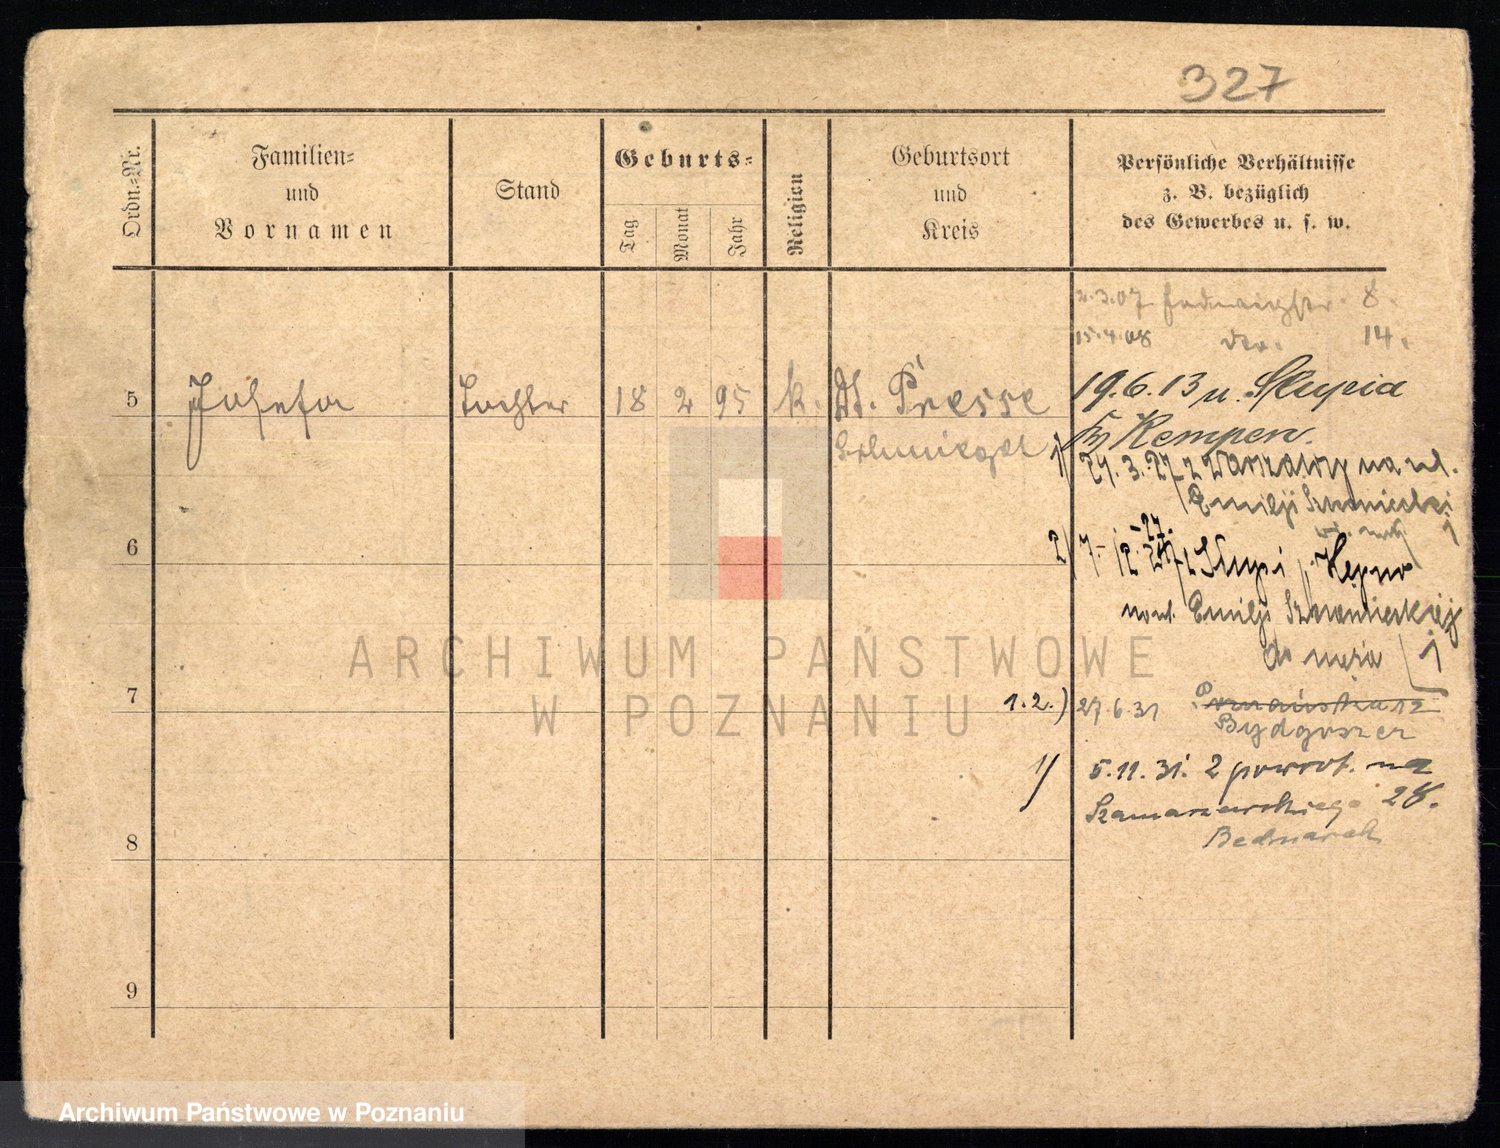 327
Ordn.-Nr.
Familien-
und
Vornamen
Stand
Geburts-
Tag
Monat
Jahr
Religion
Geburtsort
und
Kreis
Persönliche Verhältnisse
z. B. bezüglich
des Gewerbes u. s. w.
2.3.07 8.
15.4.08 14.
5 Josefa Tochter 18 2 95 k. Dt. Presse
Schmiegel
19.6.13 n. Slupia
Kr Kempen.
1) 24.3.27 z Warszawy na ul.
Emilji
6
2) 7-12-27. z Slupi p. Kępno
Emilji
do męża
7
1.2.) 27.6.31
Bydgoszcz
1) 5.11.31. z powrot. na
Szamarzewskiego 28.
Bednarek
8
9
ARCHIWUM PAŃSTWOWE
W POZNANIU
Archiwum Państwowe w Poznaniu